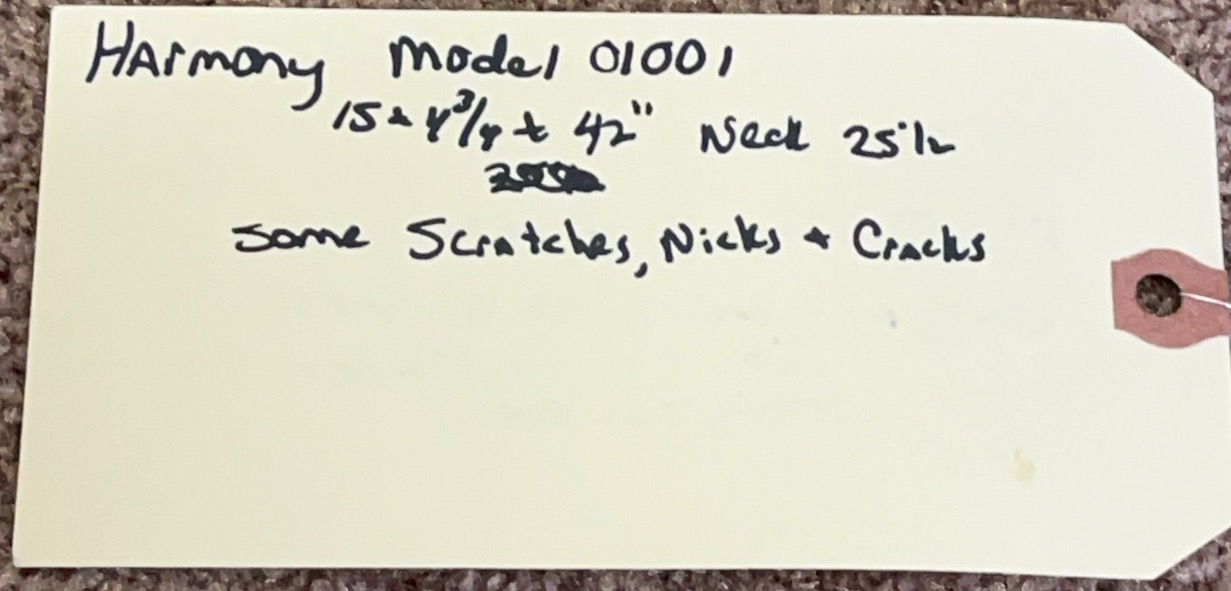 Harmony Model 01001
15 x 4 3/4 x 42" Neck 25 1/2
some Scratches, Nicks + Cracks